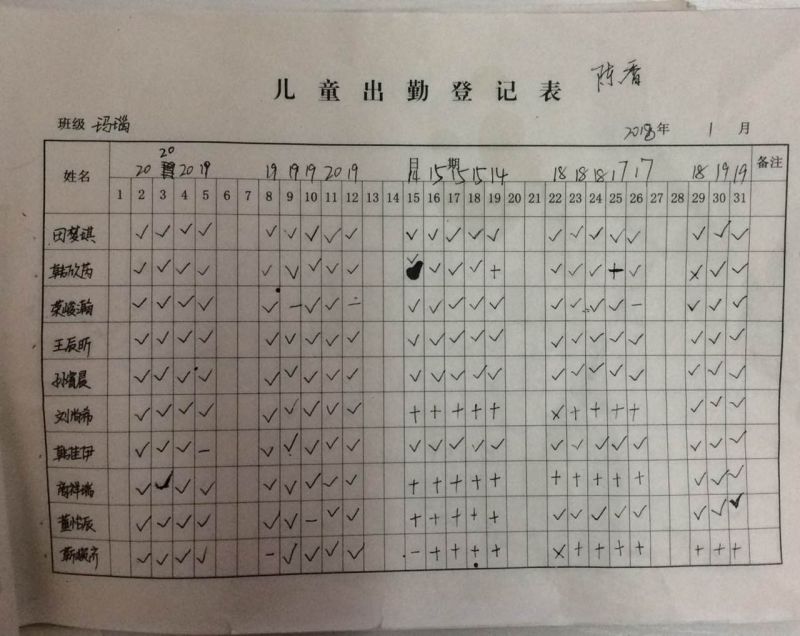 儿童出勤登记表 陈香
班级 玛瑙 2018年 1月
姓名 日期 备注
20 20 20 19 19 19 19 20 19 14 15 15 15 14 18 18 18 17 17 18 19 19
1 2 3 4 5 6 7 8 9 10 11 12 13 14 15 16 17 18 19 20 21 22 23 24 25 26 27 28 29 30 31
田梦琪 ✓ ✓ ✓ ✓ ✓ ✓ ✓ ✓ ✓ ✓ ✓ ✓ ✓ ✓ ✓ ✓ ✓ ✓ ✓ ✓ ✓ ✓
韩欣芮 ✓ ✓ ✓ ✓ ✓ ✓ ✓ ✓ ✓ ✓ ✓ ✓ ✓ + ✓ ✓ ✓ + ✓ × ✓ ✓
荣峻瀚 ✓ ✓ ✓ ✓ ✓ − ✓ ✓ − ✓ ✓ ✓ ✓ ✓ ✓ ✓ ✓ ✓ − ✓ ✓ ✓
王辰昕 ✓ ✓ ✓ ✓ ✓ ✓ ✓ ✓ ✓ ✓ ✓ ✓ ✓ ✓ ✓ ✓ ✓ ✓ ✓ ✓ ✓ ✓
孙宾晨 ✓ ✓ ✓ ✓ ✓ ✓ ✓ ✓ ✓ ✓ ✓ ✓ ✓ ✓ ✓ ✓ ✓ ✓ ✓ ✓ ✓ ✓
刘尚希 ✓ ✓ ✓ ✓ ✓ ✓ ✓ ✓ ✓ + + + + + × + + + + ✓ ✓ ✓
韩佳伊 ✓ ✓ ✓ − ✓ ✓ ✓ ✓ ✓ ✓ ✓ ✓ ✓ ✓ ✓ ✓ ✓ ✓ ✓ ✓ ✓ ✓
高祥瑞 ✓ ✓ ✓ ✓ ✓ ✓ ✓ ✓ ✓ + + + + + + + + + + ✓ ✓ ✓
董怡辰 ✓ ✓ ✓ ✓ ✓ ✓ − ✓ ✓ + + + + + ✓ ✓ ✓ ✓ ✓ ✓ ✓ ✓
✓ ✓ ✓ ✓ − ✓ ✓ ✓ ✓ − + + + + × + + + + + + +